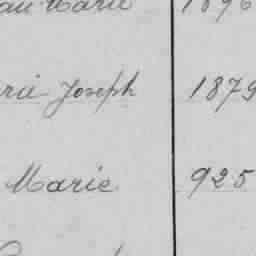 au Marie 1896
rie Joseph 1879
Marie 925